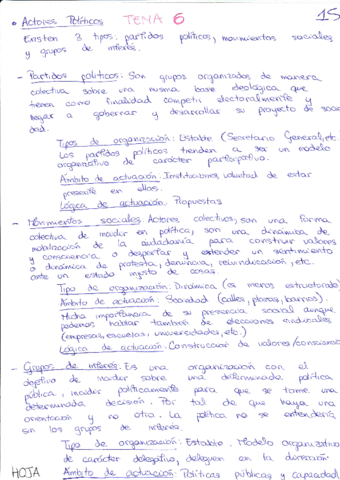 • Actores Políticos TEMA 6 15
Existen 3 tipos: partidos políticos, movimientos sociales
y grupos de interés.
- Partidos políticos: Son grupos organizados de manera
colectiva sobre una misma base ideológica que
tienen como finalidad competir electoralmente y
llegar a gobernar y desarrollar su proyecto de socie
dad.
Tipos de organización: Estable (Secretario General, etc.
Los partidos políticos tienden a ser un modelo
organizativo de carácter participativo.
Ámbito de actuación: Instituciones, voluntad de estar
presente en ellas.
Lógica de actuación: Propuestas
- Movimientos sociales: Actores colectivos, son una forma
colectiva de incidir en política, son una dinámica de
movilización de la ciudadanía para construir valores
y consciencia o despertar y extender un sentimiento
o dinámica de protesta, denuncia, reivindicación, etc.
ante un estado injusto de cosas.
Tipo de organización: Dinámica (es menos estructurado)
Ámbito de actuación: Sociedad (calles, plazas, barrios).
Mucha importancia de su presencia social aunque
podemos hablar también de elecciones sindicales
(empresas, escuelas, universidades, etc.)
Lógica de actuación: Construcción de valores/consciencia
- Grupos de interés: Es una organización con el
objetivo de incidir sobre una determinada política
pública, incidir políticamente para que se tome una
determinada decisión. Por tal de que haya una
orientación y no otra. La política no se entendería
sin los grupos de interés.
Tipo de organización: Estable. Modelo organizativo
de carácter delegativo, deleguen en la dirección
HOJA Ámbito de actuación: Políticas públicas y capacidad